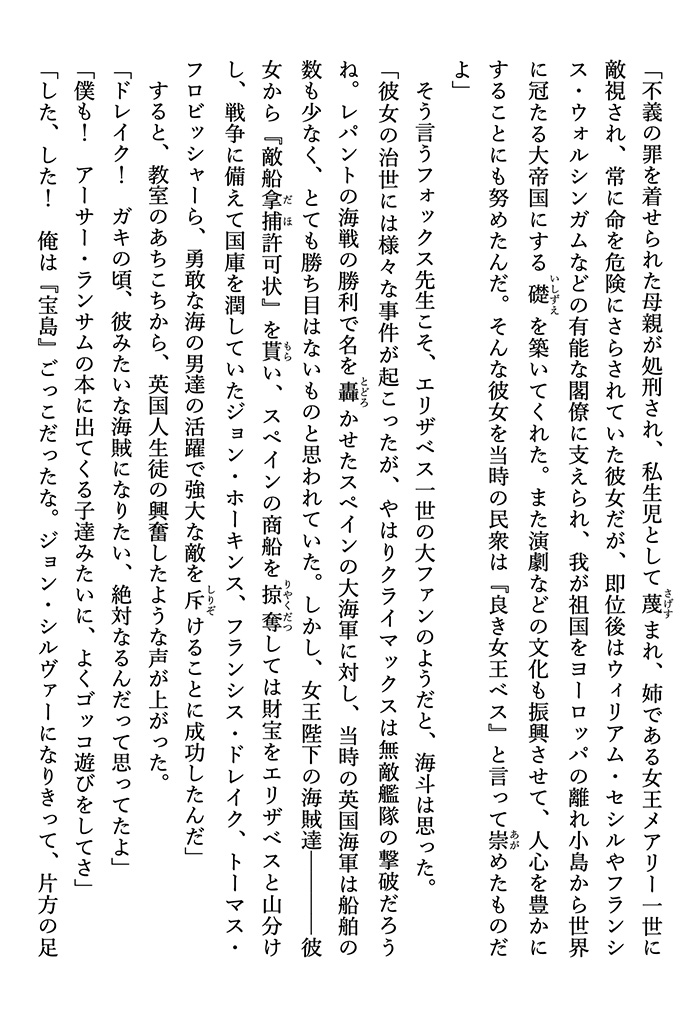 「不義の罪を着せられた母親が処刑され、私生児として蔑まれ、姉である女王メアリー一世に
敵視され、常に命を危険にさらされていた彼女だが、即位後はウィリアム・セシルやフランシ
ス・ウォルシンガムなどの有能な閣僚に支えられ、我が祖国をヨーロッパの離れ小島から世界
に冠たる大帝国にする礎を築いてくれた。また演劇などの文化も振興させて、人心を豊かに
することにも努めたんだ。そんな彼女を当時の民衆は『良き女王ベス』と言って崇めたものだ
よ」
そう言うフォックス先生こそ、エリザベス一世の大ファンのようだと、海斗は思った。
「彼女の治世には様々な事件が起こったが、やはりクライマックスは無敵艦隊の撃破だろう
ね。レパントの海戦の勝利で名を轟かせたスペインの大海軍に対し、当時の英国海軍は船舶の
数も少なく、とても勝ち目はないものと思われていた。しかし、女王陛下の海賊達――彼
女から『敵船拿捕許可状』を貰い、スペインの商船を掠奪しては財宝をエリザベスと山分け
し、戦争に備えて国庫を潤していたジョン・ホーキンス、フランシス・ドレイク、トーマス・
フロビッシャーら、勇敢な海の男達の活躍で強大な敵を斥けることに成功したんだ」
すると、教室のあちこちから、英国人生徒の興奮したような声が上がった。
「ドレイク！　ガキの頃、彼みたいな海賊になりたい、絶対なるんだって思ってたよ」
「僕も！　アーサー・ランサムの本に出てくる子達みたいに、よくゴッコ遊びをしてさ」
「した、した！　俺は『宝島』ごっこだったな。ジョン・シルヴァーになりきって、片方の足